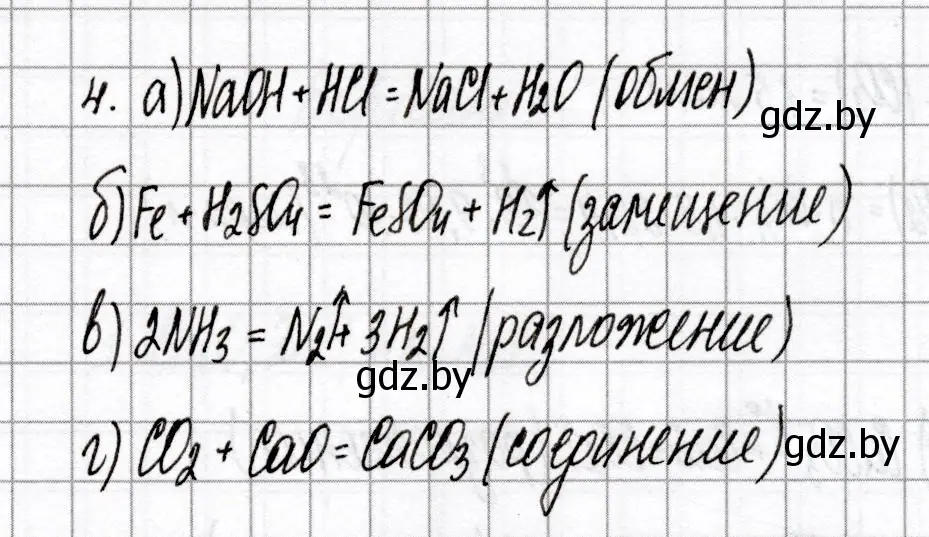 4. а) NaOH + HCl = NaCl + H2O (обмен)
gdz.by
б) Fe + H2SO4 = FeSO4 + H2↑ (замещение)
в) 2NH3 = N2↑ + 3H2↑ (разложение)
gdz.by
г) CO2 + CaO = CaCO3 (соединение)
gdz.by